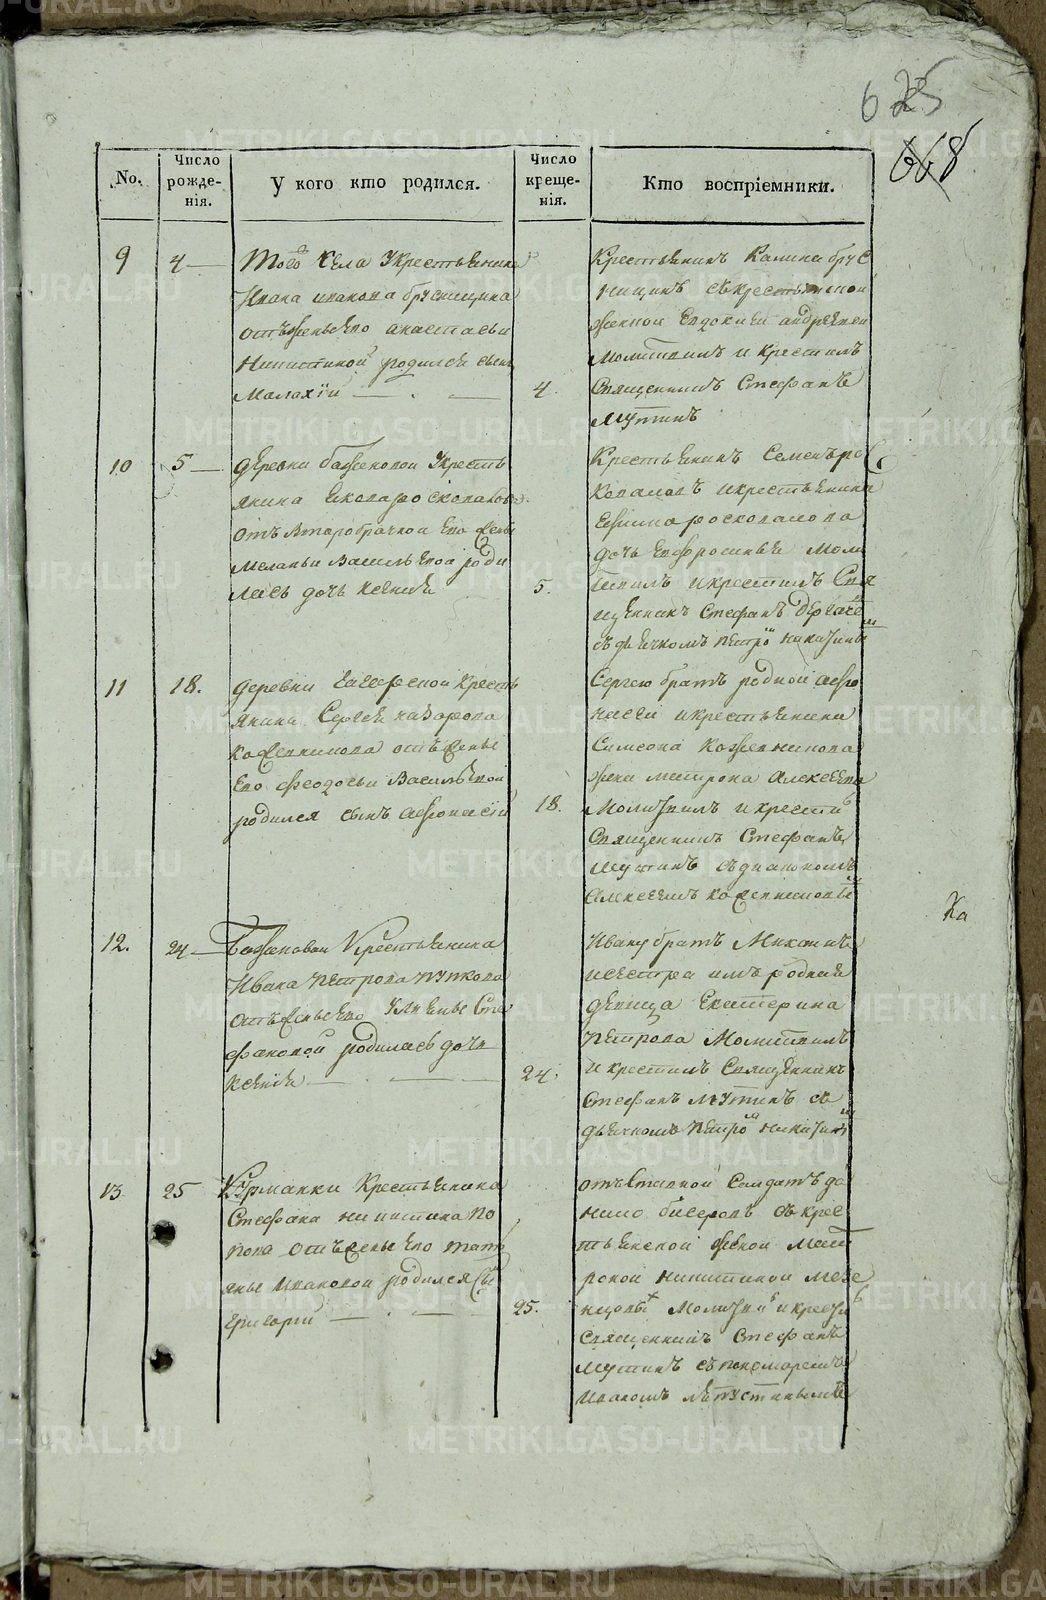 625
668
No.
Число
рожде-
нія.
У кого кто родился.
Число
креще-
нія.
Кто воспріемники.
9
4
Того Села Укрестьянина
Ивана иванова брусницина
отъ жены его анастасьи
Никитиной родился сынъ
Малахiй
4
Крестьянинъ Калина брус
ницинъ съ крестьянской
женкой Евдокией андреевой
Молитвилъ и крестилъ
Священникъ Стефанъ
Мутинъ
10
5
деревни баженовой Укресть
янина
отъ Второбрачной его жены
Меланьи Васильевой роди
лась дочь Ксения
5.
Крестьянинъ Семенъ рос
коваловъ и крестьянина
Ефима росковалова
дочь Евфросинья Моли
твилъ и крестилъ Свя
щенникъ Стефанъ
съ дьячкомъ Петромъ
11
18.
деревни крестъ
янина Сергея назарова
кожевникова отъ жены
Его Феодосьи Васильевой
родился сынъ Афонасiй
18.
Сергею братъ родной афо
насей и крестьянина
Симеона Кожевникова
жена матрона Алексеева
Молитвилъ и крестилъ
Священникъ Стефанъ
Мутинъ съ диакономъ
Алексеемъ кожевниковымъ
12.
24
Баженовой Укрестьянина
Ивана Петрова пупкова
отъ жены его Сте
фановой родилась дочь
Ксения
24.
Ивану братъ Никита
и сестра имъ родная
девица Екатерина
Петрова Молитвилъ
и крестилъ Священникъ
Стефанъ Мутинъ съ
дьячкомъ Петромъ
Ка
13
25
Курманки Крестьянина
Стефана никитина По
пова отъ жены его тать
яны Ивановой родился сынъ
Григорiй
25.
отъставной Салдатъ да
нило бисеровъ съ крес
тьянской женкой Мат
роной никитиной
Молитвилъ и крестилъ
Священникъ Стефанъ
Мутинъ съ пономаремъ
Иваномъ
METRIKI.GASO-URAL.RU